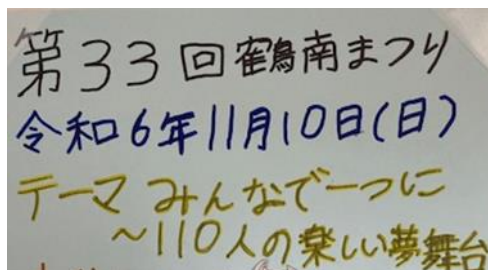 第33回鶴南まつり
令和6年11月10日(日)
テーマ みんなで一つに
～110人の楽しい夢舞台